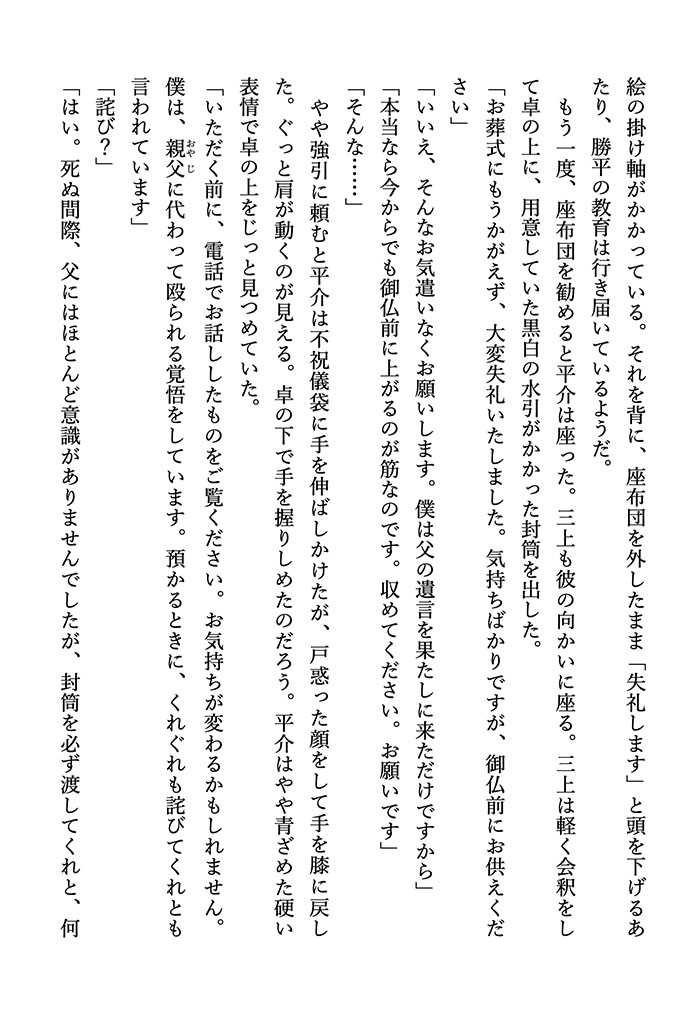 絵の掛け軸がかかっている。それを背に、座布団を外したまま「失礼します」と頭を下げるあ
たり、勝平の教育は行き届いているようだ。
　もう一度、座布団を勧めると平介は座った。三上も彼の向かいに座る。三上は軽く会釈をし
て卓の上に、用意していた黒白の水引がかかった封筒を出した。
「お葬式にもうかがえず、大変失礼いたしました。気持ちばかりですが、御仏前にお供えくだ
さい」
「いいえ、そんなお気遣いなくお願いします。僕は父の遺言を果たしに来ただけですから」
「本当なら今からでも御仏前に上がるのが筋なのです。収めてください。お願いです」
「そんな……」
　やや強引に頼むと平介は不祝儀袋に手を伸ばしかけたが、戸惑った顔をして手を膝に戻し
た。ぐっと肩が動くのが見える。卓の下で手を握りしめたのだろう。平介はやや青ざめた硬い
表情で卓の上をじっと見つめていた。
「いただく前に、電話でお話ししたものをご覧ください。お気持ちが変わるかもしれません。
僕は、親父おやじに代わって殴られる覚悟をしています。預かるときに、くれぐれも詫びてくれとも
言われています」
「詫び？」
「はい。死ぬ間際、父にはほとんど意識がありませんでしたが、封筒を必ず渡してくれと、何